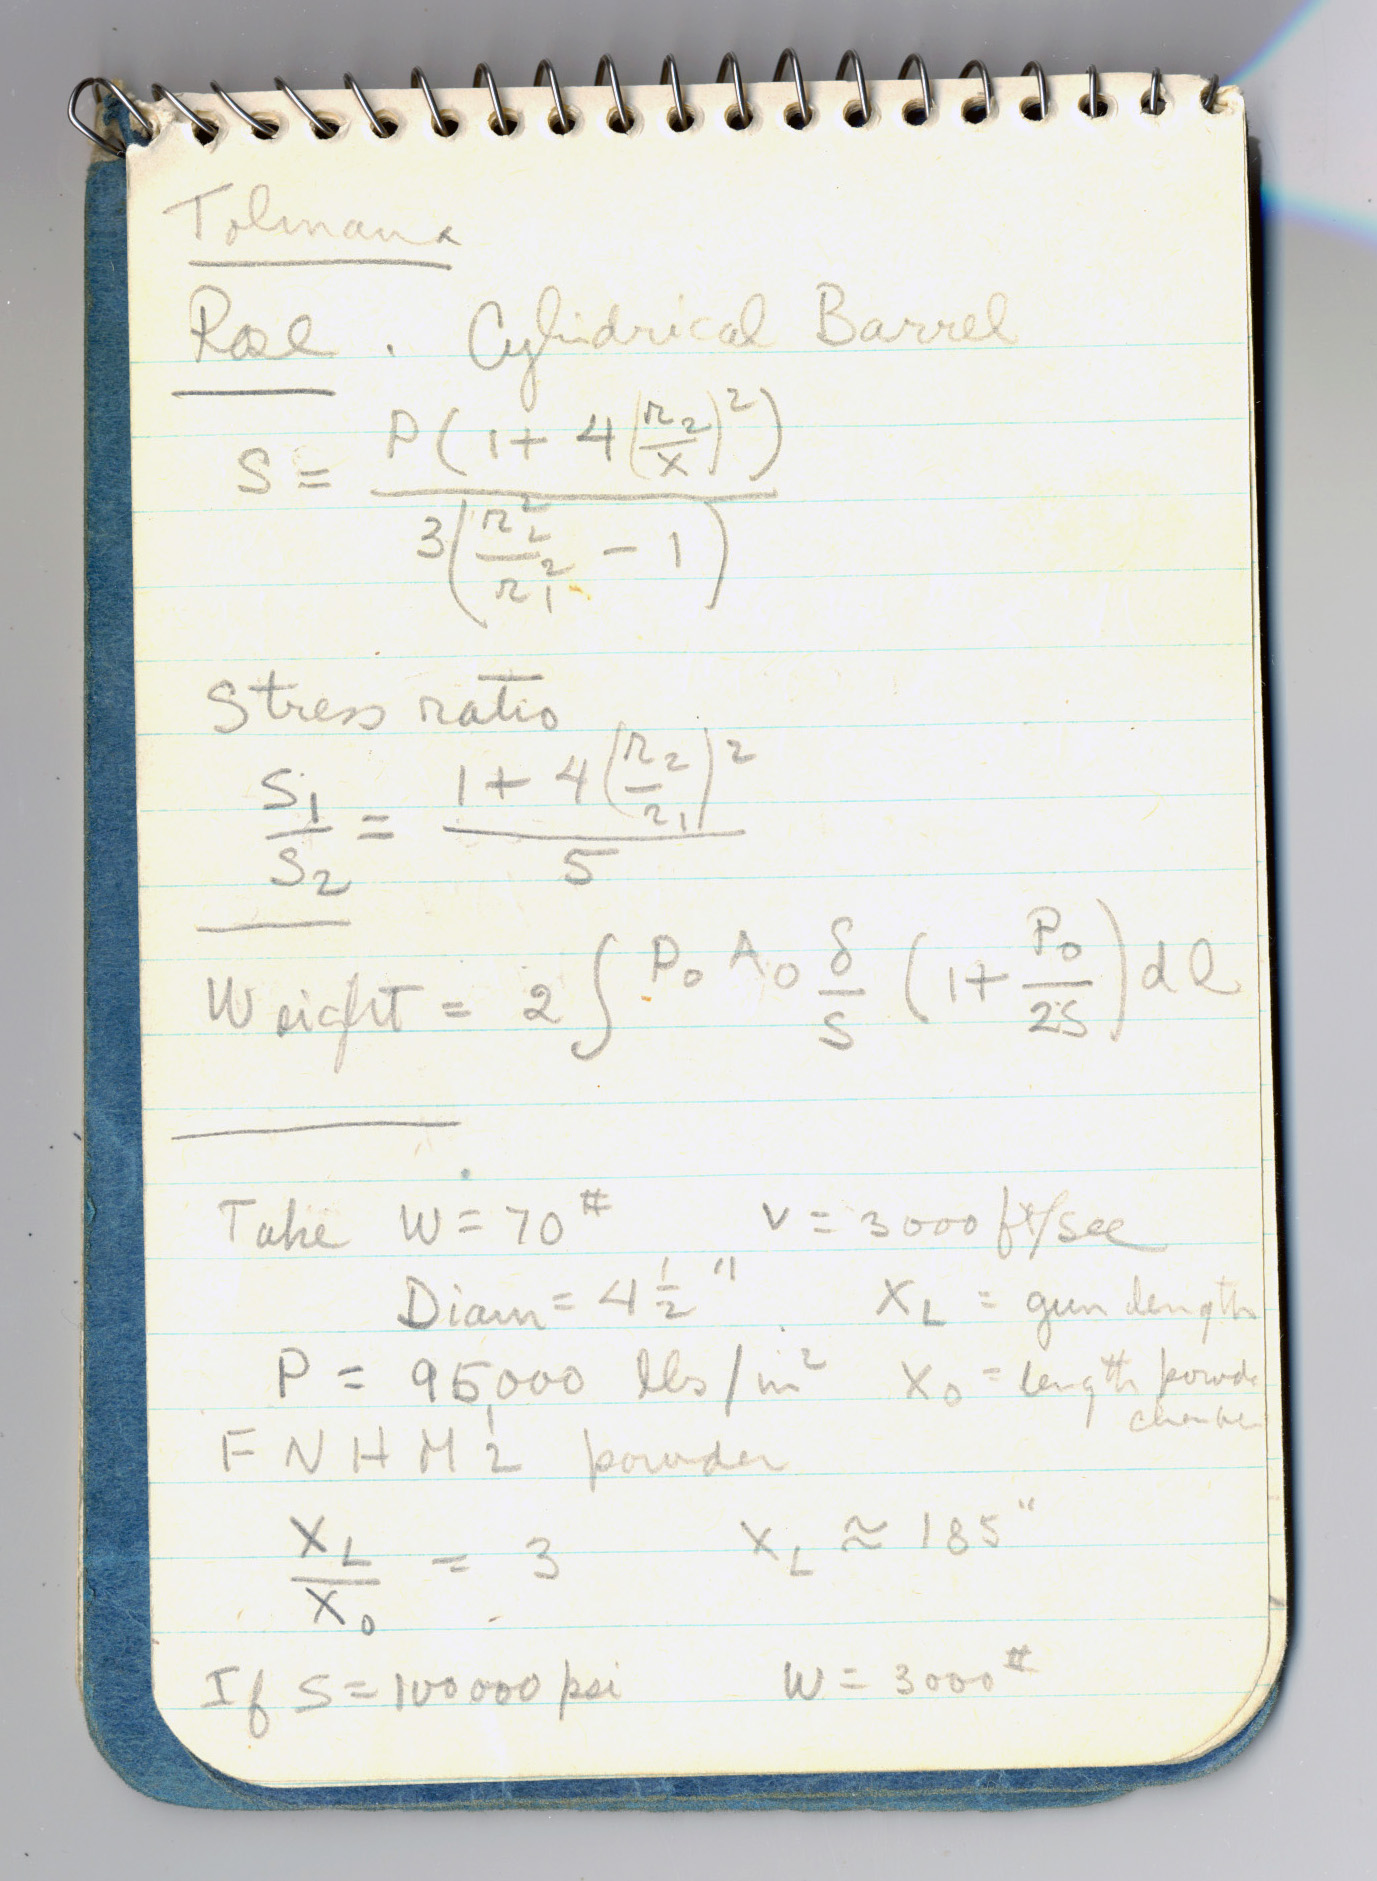 Tolman
Rose . Cylindrical Barrel
S = P(1 + 4(r₂/x)²) / 3(r₂²/r₁² - 1)
Stress ratio
S₁/S₂ = (1 + 4(r₂/r₁)²) / 5
Weight = 2 ∫ P₀ A₀ δ/S (1 + P₀/2S) dl
Take W = 70# v = 3000 ft/sec
Diam = 4 1/2" X_L = gun length
P = 95,000 lbs/in² X₀ = length powde
chamber
F N H M 2 powder
X_L/X₀ = 3 X_L ≈ 185"
If S = 100000 psi W = 3000#